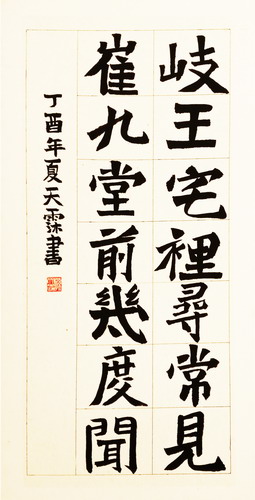 岐王宅裡尋常見
崔九堂前幾度聞
丁酉年夏天霖書